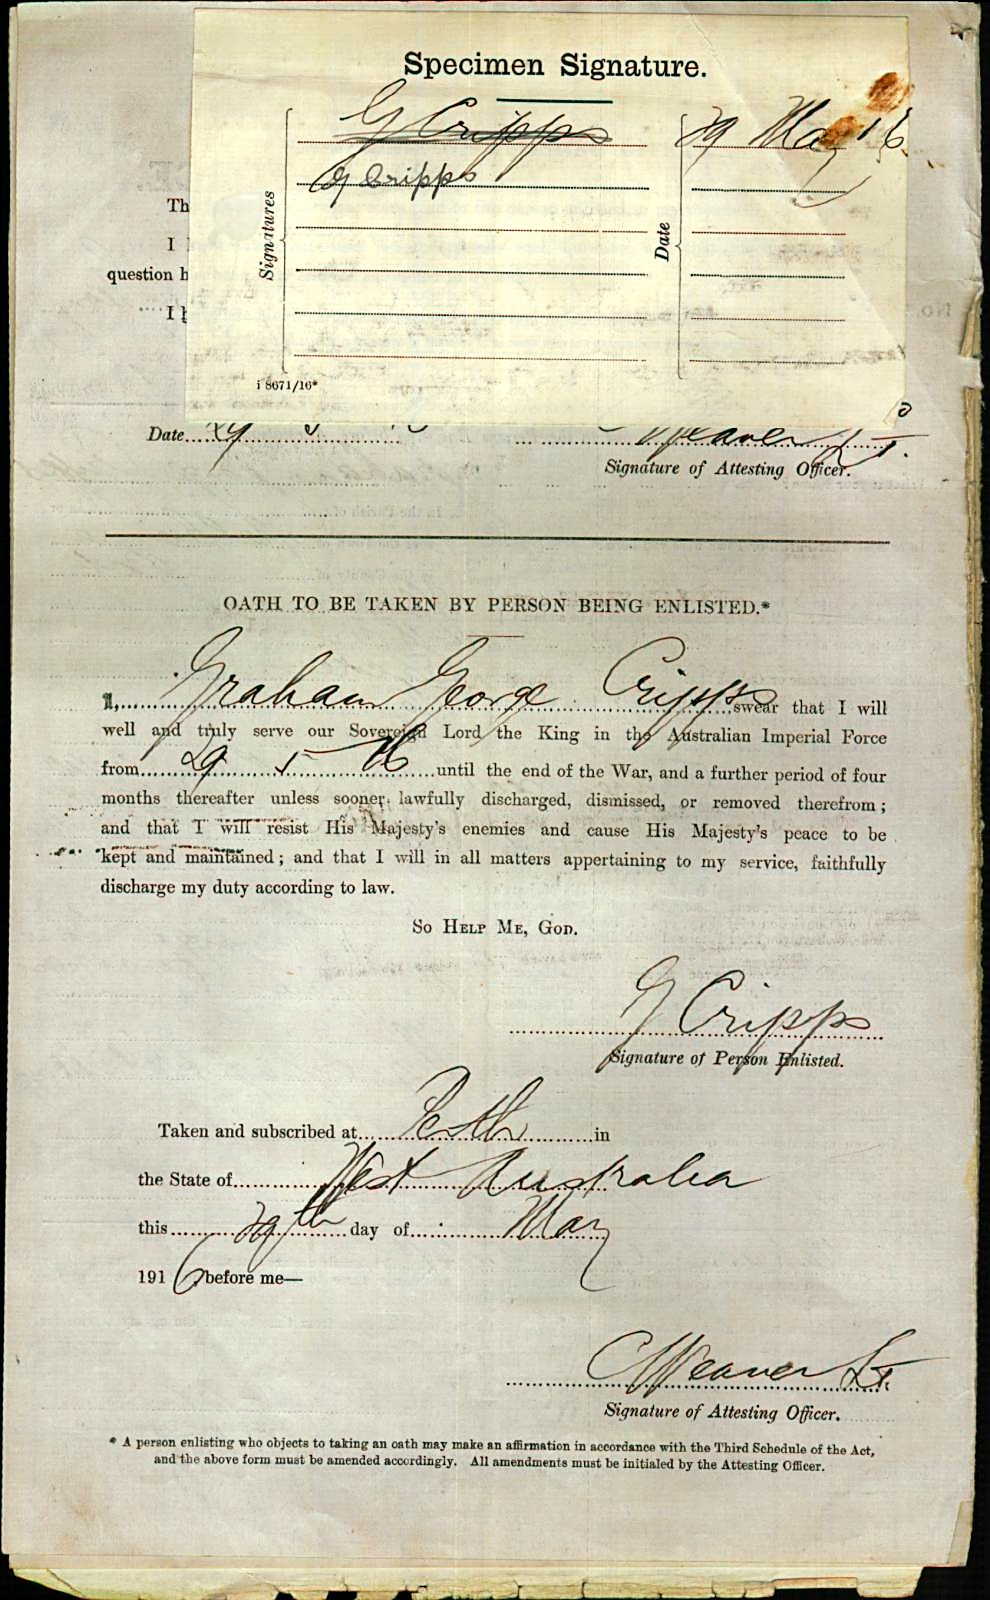 Specimen Signature.
Signatures
G Cripps
29 May 16
G Cripps
Date
i 8671/16*
Th
I
question h
I h
Date 29 5 16
Weaver Lt.
Signature of Attesting Officer.
OATH TO BE TAKEN BY PERSON BEING ENLISTED.*
I, Graham George Cripps swear that I will
well and truly serve our Sovereign Lord the King in the Australian Imperial Force
from 29 5 16 until the end of the War, and a further period of four
months thereafter unless sooner lawfully discharged, dismissed, or removed therefrom;
and that I will resist His Majesty's enemies and cause His Majesty's peace to be
kept and maintained; and that I will in all matters appertaining to my service, faithfully
discharge my duty according to law.
So Help Me, God.
G Cripps
Signature of Person Enlisted.
Taken and subscribed at Perth in
the State of West Australia
this 29th day of May
1916 before me—
C Weaver Lt.
Signature of Attesting Officer.
* A person enlisting who objects to taking an oath may make an affirmation in accordance with the Third Schedule of the Act,
and the above form must be amended accordingly. All amendments must be initialed by the Attesting Officer.